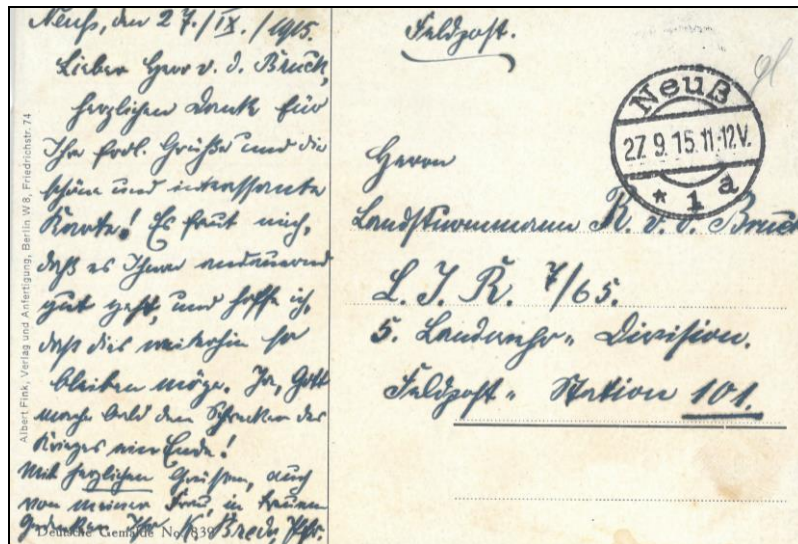 Neuß, den 27./IX./1915.
Lieber Herr v. d. Bruck,
herzlichen Dank für
Ihre frdl. Grüße und die
schöne und interessante
Karte! Es freut mich,
daß es Ihnen andauernd
gut geht, und hoffe ich,
daß dies weiterhin so
bleiben möge. Ja, Gott
mache bald dem Schrecken des
Krieges ein Ende!
Mit herzlichen Grüßen, auch
von meiner Frau, in treuem
Gedenken Ihr K.
Deutsche Gemälde No. 839
Albert Fink, Verlag und Anfertigung, Berlin W 8, Friedrichstr. 74
Feldpost.
Neuß
27.9.15.11-12V.
* 1 a
Herrn
Landsturmmann R. v. d. Bruck
L. I. R. 7/65.
5. Landwehr-Division.
Feldpost-Station 101.